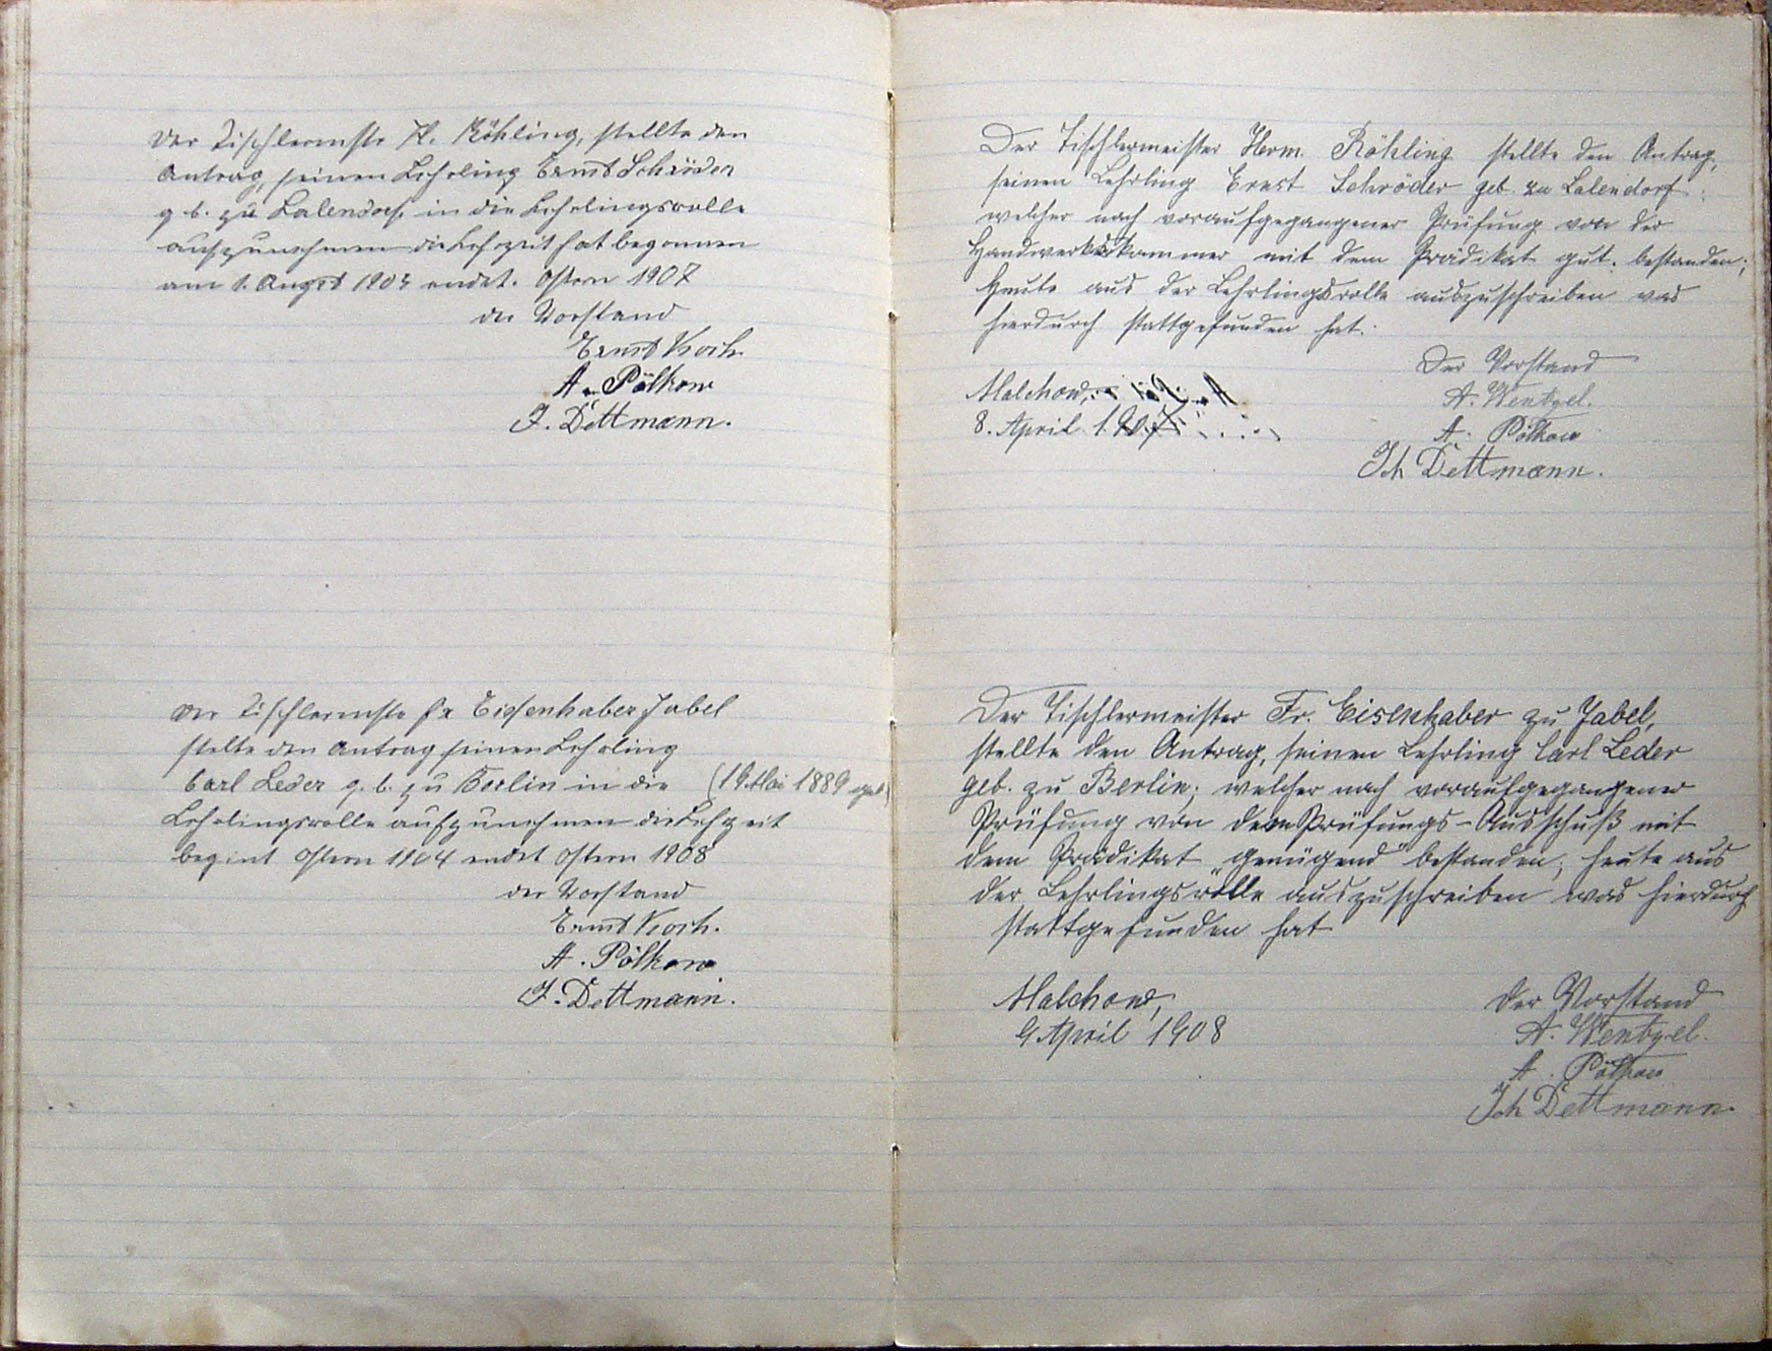 Der Tischlermstr H. Röhling, stellte den
Antrag, seinen Lehrling Ernst Schröder
g b. zu Lalendorf, in die Lehrlingsrolle
aufzunehmen die Lehrzeit hat begonnen
am 1. Augst endet. Ostern 1907
der Vorstand
Ernst Koch.
A. Pölkow
J. Dettmann.
Der Tischlermstr Fr Eisenhaber Jabel
stelte den Antrag seinen Lehrling
Carl Leder g. b. zu Berlin in die (19 Mai 1889 geb)
Lehrlingsrolle aufzunehmen die Lehrzeit
begint Ostern 1904 endet Ostern 1908
der Vorstand
Ernst Koch.
A. Pölkow
J. Dettmann.
Der Tischlermeister Herm. Röhling stellte den Antrag,
seinen Lehrling Ernst Schröder geb. zu Lalendorf
welcher nach voraufgegangener Prüfung von der
Handwerkskammer mit dem Prädikat gut. bestanden;
heute aus der Lehrlingsrolle auszuschreiben was
hierdurch stattgefunden hat.
Der Vorstand
Malchow,
A. Wentzel.
8. April
A. Pölkow
Joh Dettmann.
Der Tischlermeister Fr. Eisenhaber zu Jabel,
stellte den Antrag, seinen Lehrling Carl Leder
geb. zu Berlin; welcher nach voraufgegangener
Prüfung von dem Prüfungs-Ausschuß mit
dem Prädikat „genügend" bestanden; heute aus
der Lehrlingsrolle auszuschreiben was hierdurch
stattgefunden hat
Malchow,
9 April 1908
Der Vorstand
A. Wentzel.
A. Pölkow
Joh Dettmann.